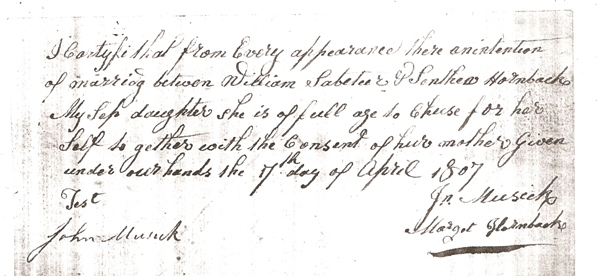 I Certyfi that from Every appearance there an intention
of marriog betwen William Sabeteer & Sinthew Hornback
My Sep daughter she is of full age to Chuse for her
Self to gether with the Consent of hur mother Given
under our hands the 17th day of April 1807
Test
Jn Musick
John Musick
Margot Hornback